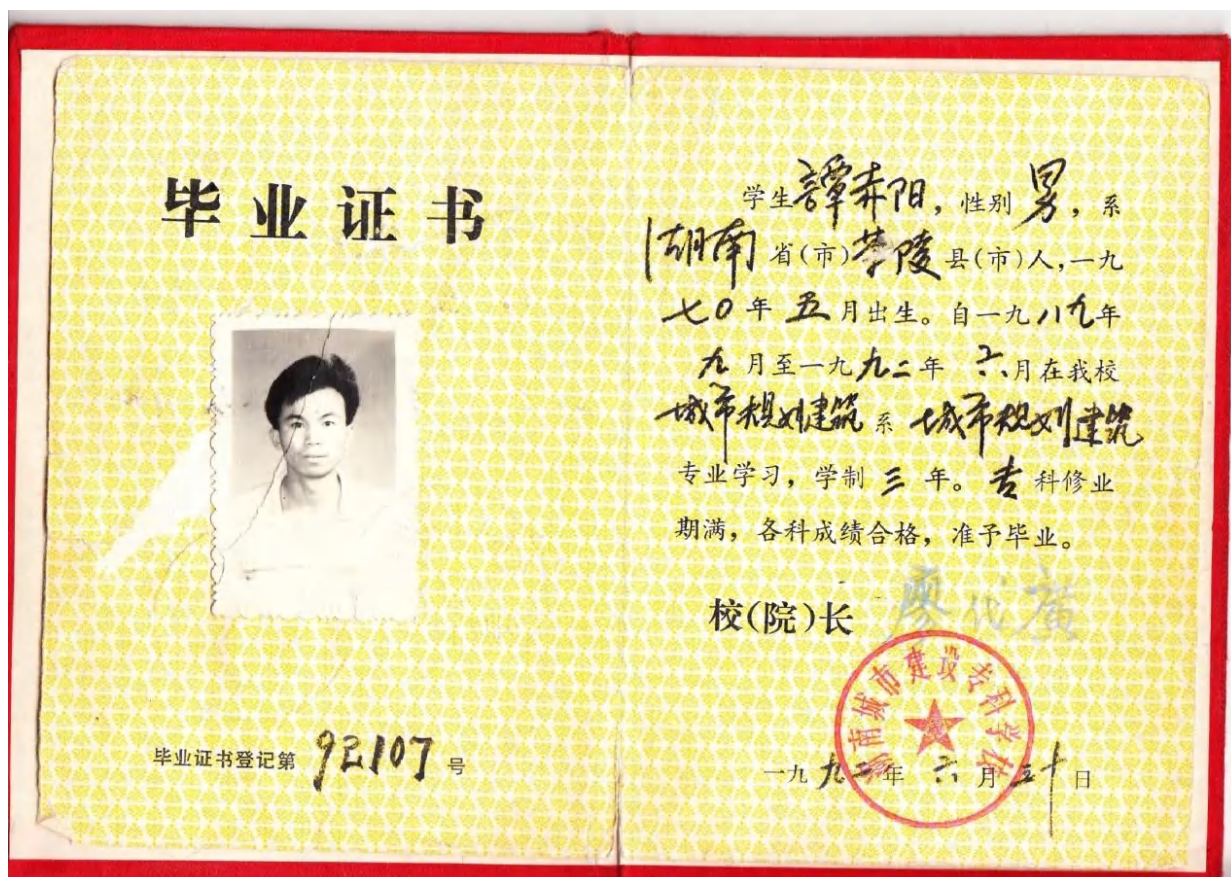 毕业证书
毕业证书登记第 92107 号
学生譚赤阳，性别男，系
湖南省(市)茶陵县(市)人，一九
七〇年五月出生。自一九八九年
九月至一九九二年六月在我校
城市规划建筑系城市规划建筑
专业学习，学制三年。专科修业
期满，各科成绩合格，准予毕业。
校(院)长
湖南城市建设专科学校
一九九二年六月三十日